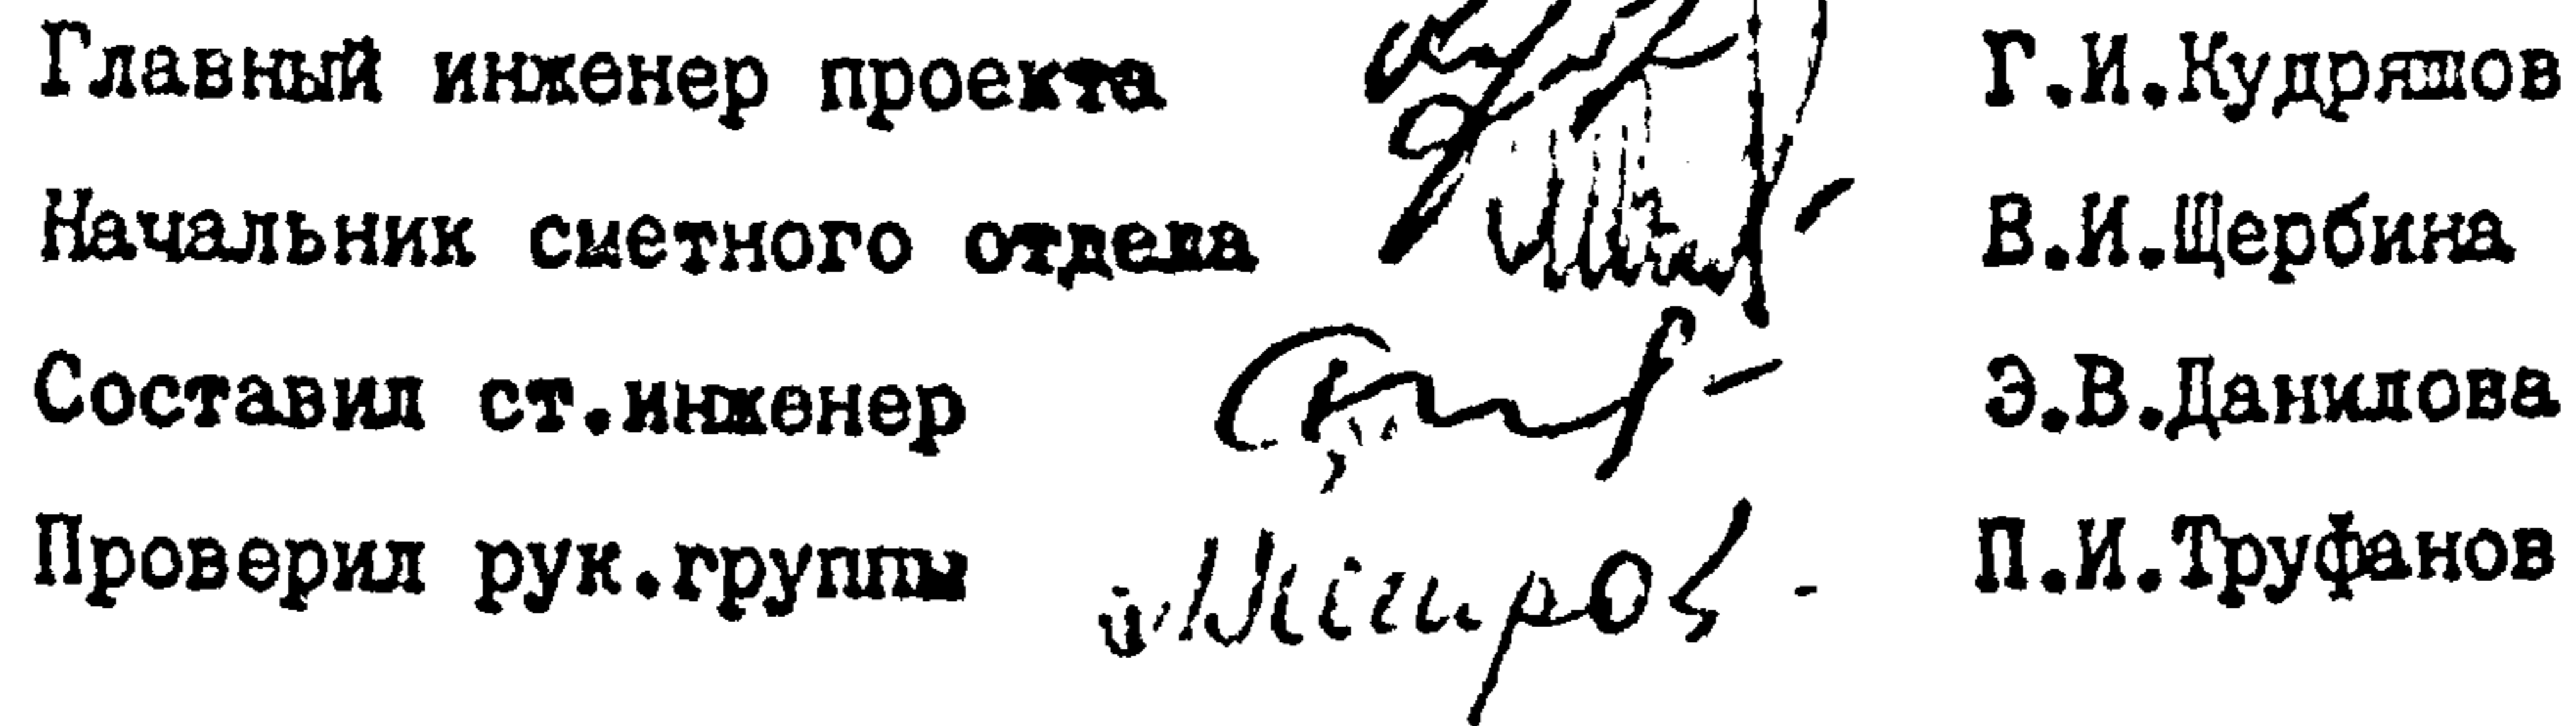 Главный инженер проекта Г.И.Кудряшов
Начальник сметного отдела В.И.Щербина
Составил ст.инженер Э.В.Данилова
Проверил рук.группы П.И.Труфанов